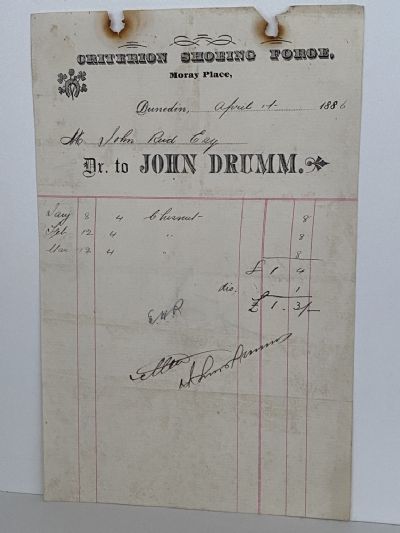 CRITERION SHOEING FORGE.
Moray Place,
Dunedin, April 1st 1886
Mr John Reid Esq
Dr. to JOHN DRUMM.
Jany 8 4 Chesnut 8
Feb 12 4 " 8
Mar 12 4 " 8
£ 1 4
dis. 1
£ 1. 3/-
John Drumm